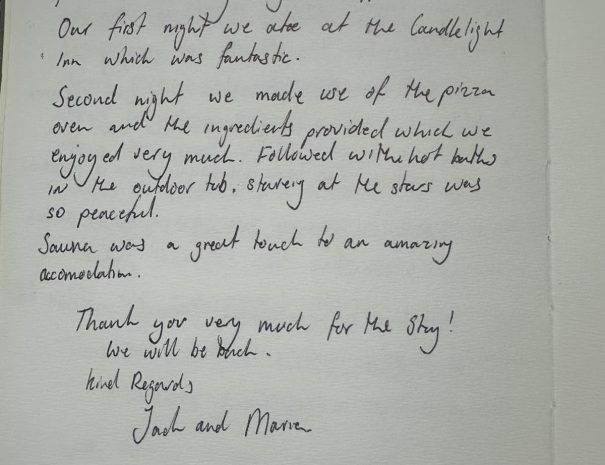 Our first night we ate at the Candlelight
Inn which was fantastic.
Second night we made use of the pizza
oven and the ingredients provided which we
enjoyed very much. Followed with hot baths
in the outdoor tub, stareing at the stars was
so peaceful.
Sauna was a great touch to an amazing
accomodation.
Thank you very much for the stay!
We will be back.
Kind Regards
Jack and